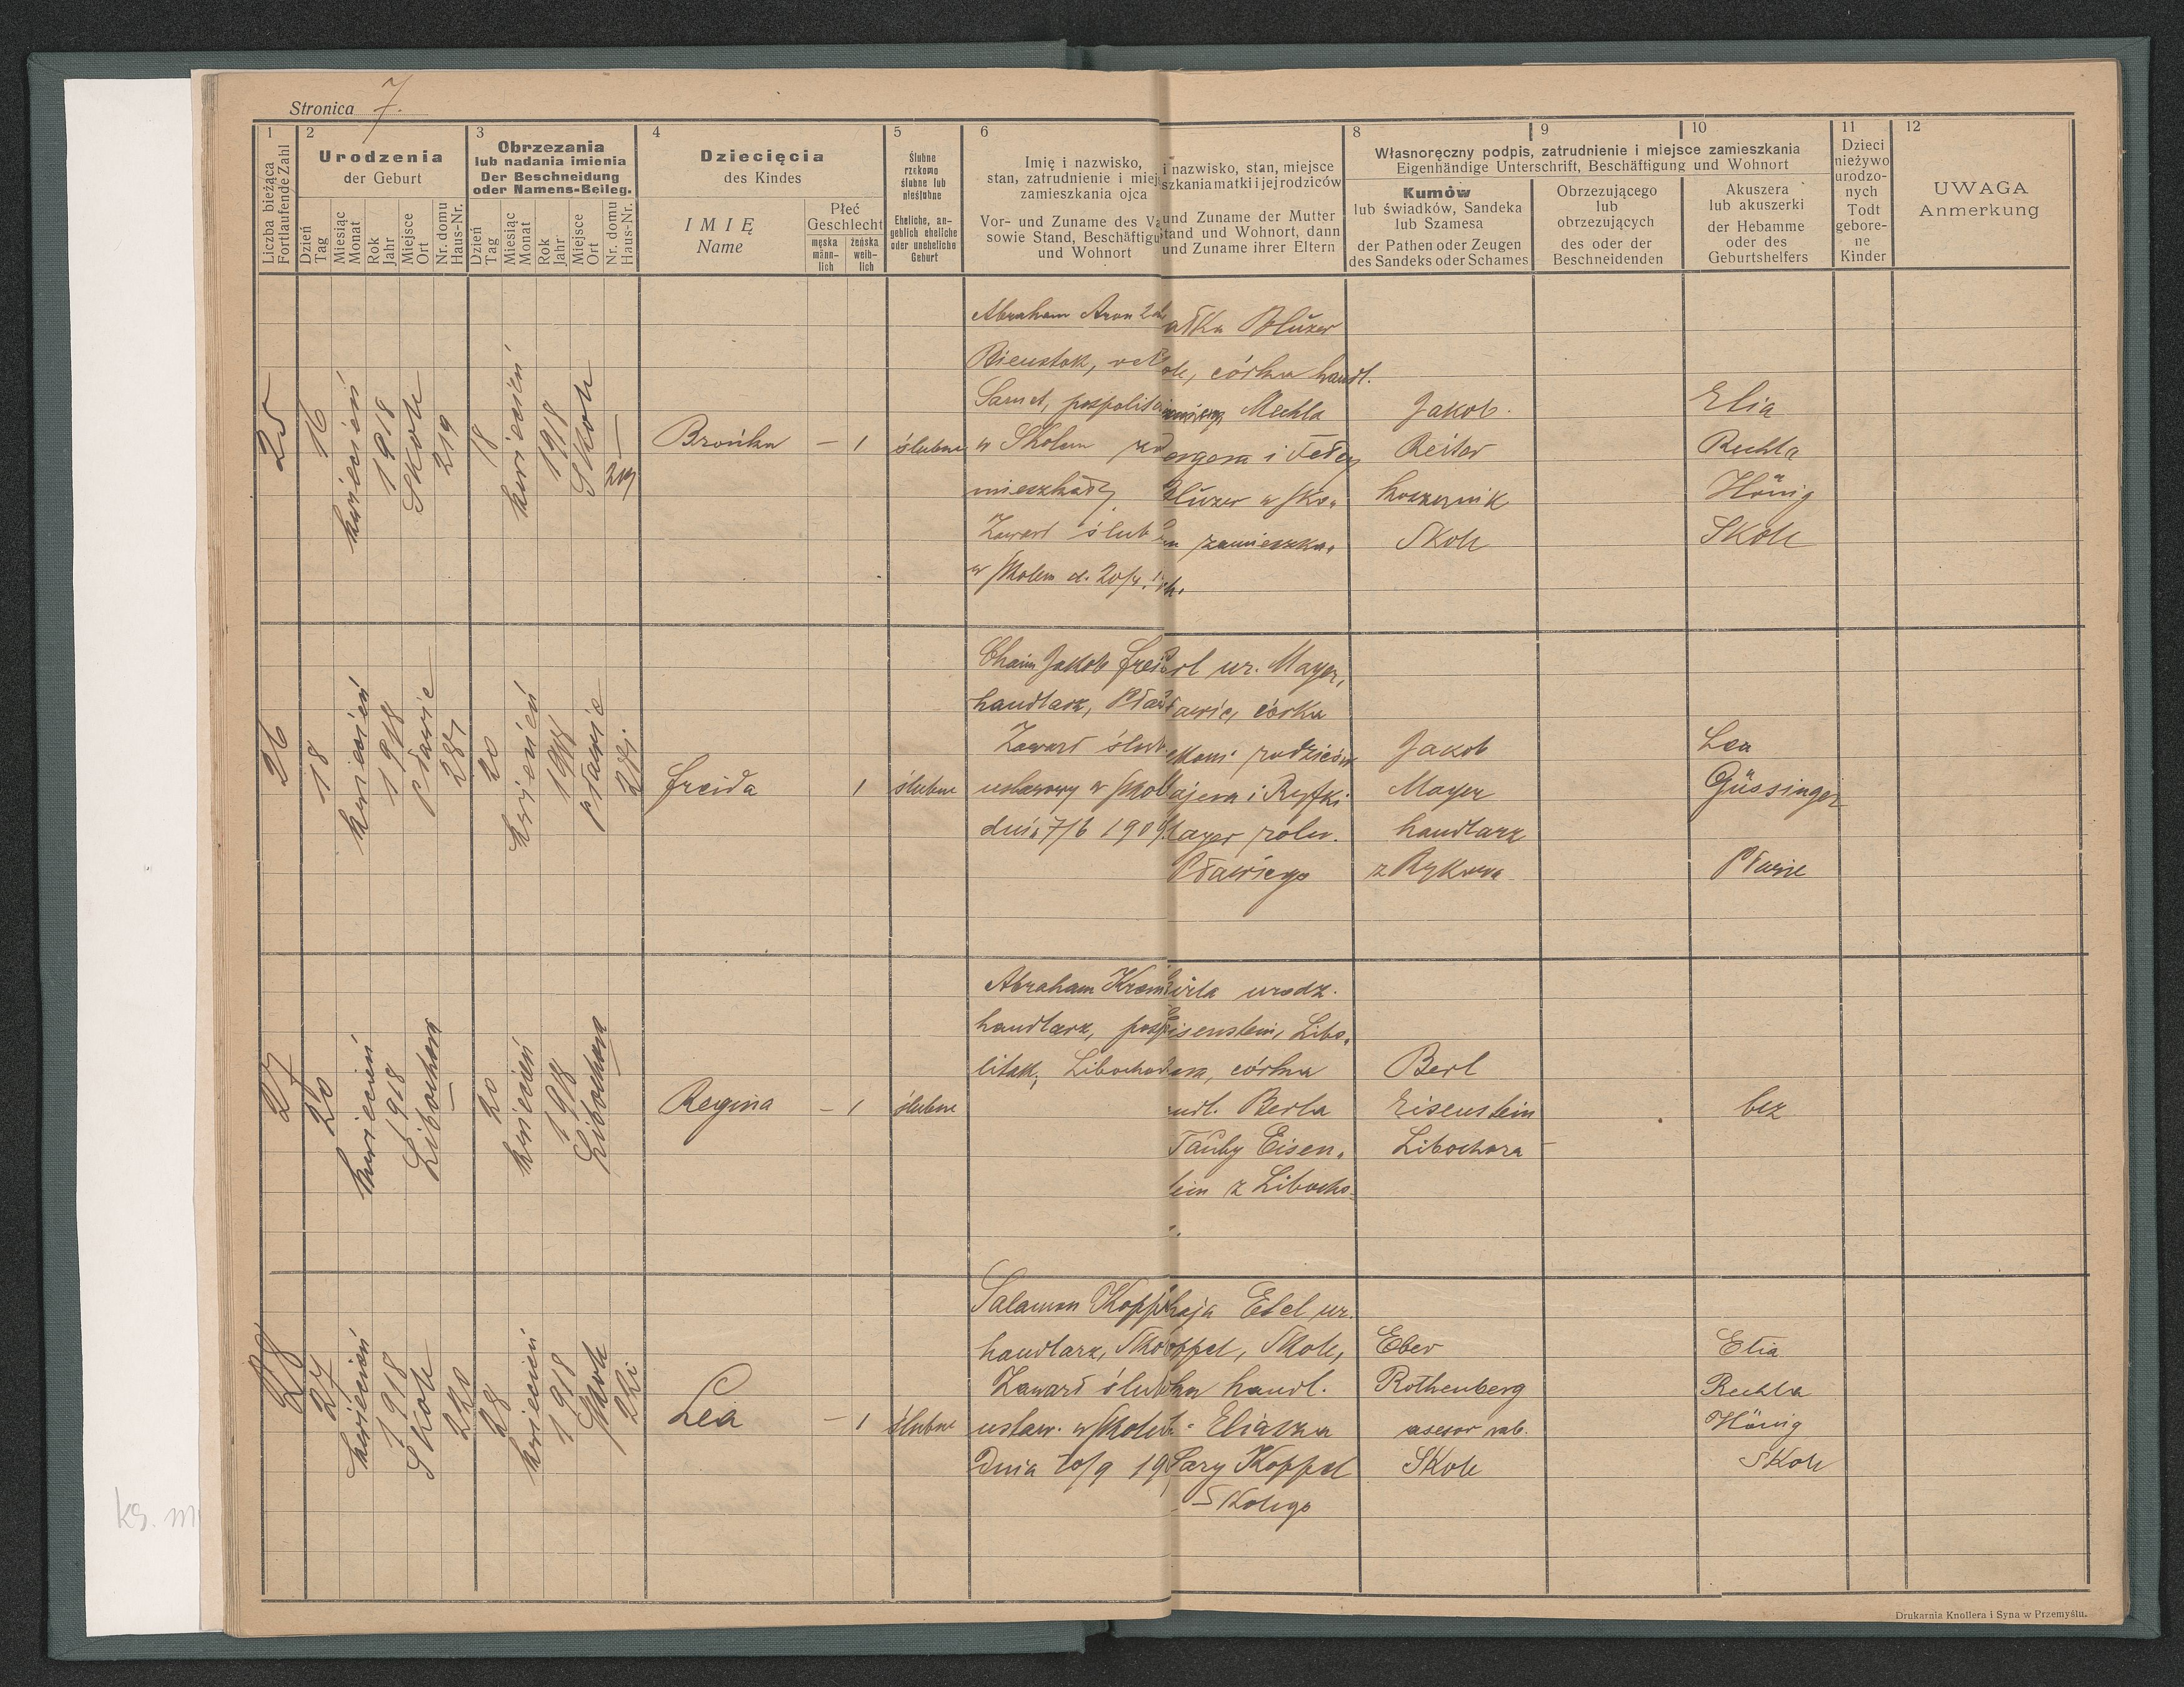 Stronica 7.
1
2
3
4
5
6
8
9
10
11
12
Liczba bieżąca
Fortlaufende Zahl
Urodzenia
der Geburt
Dzień
Tag
Miesiąc
Monat
Rok
Jahr
Miejsce
Ort
Nr. domu
Haus-Nr.
Obrzezania
lub nadania imienia
Der Beschneidung
oder Namens-Beileg.
Dzień
Tag
Miesiąc
Monat
Rok
Jahr
Miejsce
Ort
Nr. domu
Haus-Nr.
Dziecięcia
des Kindes
IMIĘ
Name
Płeć
Geschlecht
męska
männ-
lich
żeńska
weib-
lich
Ślubne
rzekomo
ślubne lub
nieślubne
Eheliche, an-
geblich eheliche
oder uneheliche
Geburt
Imię i nazwisko,
stan, zatrudnienie i miej
zamieszkania ojca
Vor- und Zuname des V
sowie Stand, Beschäftigu
und Wohnort
i nazwisko, stan, miejsce
szkania matki i jej rodziców
und Zuname der Mutter
tand und Wohnort, dann
und Zuname ihrer Eltern
Własnoręczny podpis, zatrudnienie i miejsce zamieszkania
Eigenhändige Unterschrift, Beschäftigung und Wohnort
Kumów
lub świadków, Sandeka
lub Szamesa
der Pathen oder Zeugen
des Sandeks oder Schames
Obrzezującego
lub
obrzezujących
des oder der
Beschneidenden
Akuszera
lub akuszerki
der Hebamme
oder des
Geburtshelfers
Dzieci
nieżywo
urodzo-
nych
Todt
gebore-
ne
Kinder
UWAGA
Anmerkung
25
16
kwiecień
1918
Skole
219
18
kwiecień
1918
Skole
219
Brońka
— 1
ślubne
Abraham Aron
Bienstok,
w Skolem
mieszkały
Zawarł ślub
w Skolem d. 20/4.
córka handl.
Mechla
zamieszka,
Jakob
Reiter
Skole
Elia
Rechla
Hönig
Skole
26
18
kwiecień
1918
Pławie
281
20
kwiecień
1918
Pławie
281.
Freida
1
ślubne
Chaim Jakob
handlarz,
Zawarł ślub
ustawowy w
dnia 7/6 190
ur. Mayer,
córka
rodziców
i Ryfki
roln.
Pławiego
Jakob
Mayer
handlarz
z Rykowa
Lea
Güssinger
Pławie
27
20
kwiecień
1918
Libochora
20
kwiecień
1918
Libochora
Regina
— 1
ślubne
Abraham
handlarz,
litak,
urodz.
isenstein, Libo,
córka
ndl. Berla
Tauby Eisen,
z Libocho
Berl
Eisenstein
Libochora
bez
28
27
kwiecień
1918
Skole
220
28
kwiecień
1918
Skole
Lea
— 1
ślubne
Salamon
handlarz,
Zawarł ślub
ustaw. w
Dnia 20/9 19
haja Edel ur.
oppel, Skole,
handl.
Eliasza
Sary Koppel
Skolego
Eber
Rothenberg
asesor rab.
Skole
Elia
Rechla
Hönig
Skole
Drukarnia Knollera i Syna w Przemyślu.